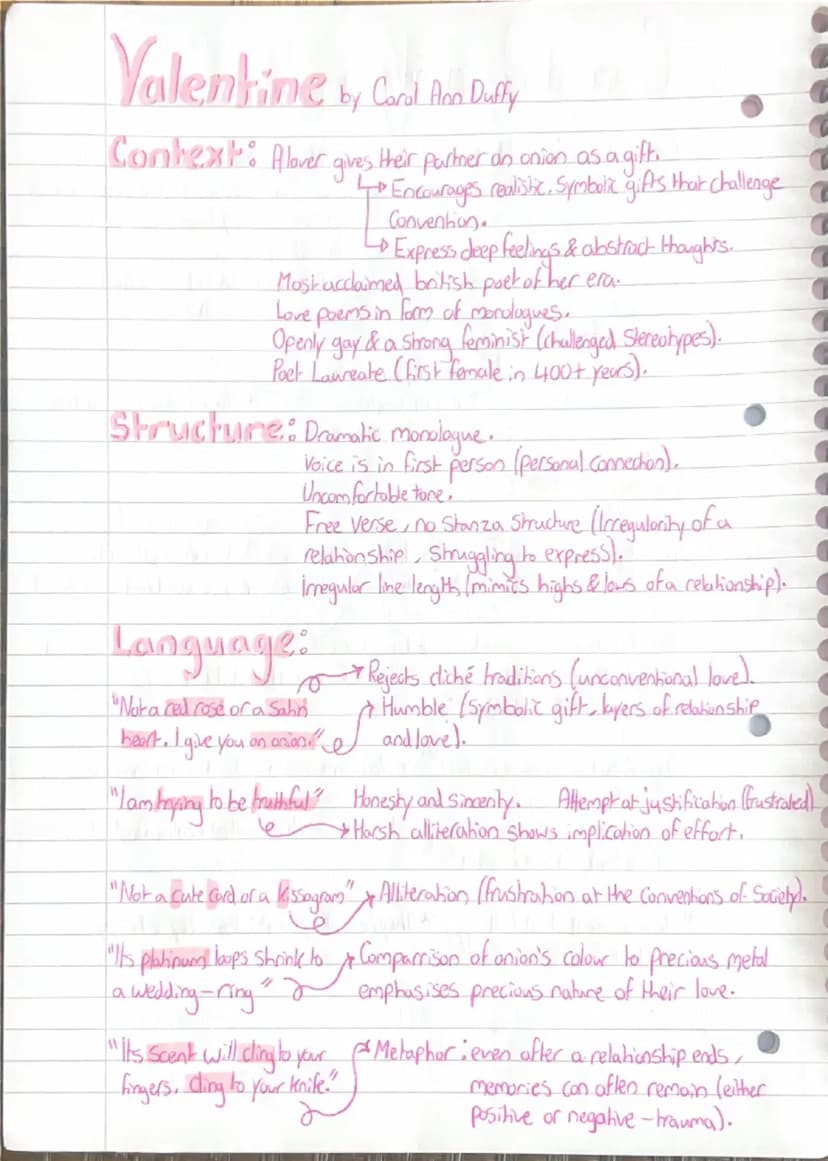 Valentine by Carol Ann Duffy
Context: A lover gives their partner an onion as a gift.
Encourages realistic, Symbolic gifts that challenge
Convention.
Express deep feelings & abstract thoughts.
Most acclaimed british poet of her era.
Love poems in form of monologues.
Openly gay & a strong feminist (challenged Stereotypes).
Poet Laureate (first female in 400+ years).
Structure: Dramatic monologue.
Voice is in first person (personal connection).
Uncomfortable tone.
Free verse, no Stanza Structure (Irregularity of a
relationship, Struggling to express).
Irregular line length (mimics highs & lows of a relationship).
Language:
Rejects cliché traditions (unconventional love).
"Not a red rose or a Satin
heart. I give you an onion."
Humble (Symbolic gift, layers of relationship
and love).
"I am trying to be truthful" Honesty and sincerity. Attempt at justification (frustrated)
Harsh alliteration shows implication of effort.
"Not a cute card or a kissogram" Alliteration (frustration at the Conventions of Society).
"Its platinum loops shrink to
a wedding-ring"
Comparrison of onion's colour to precious metal
emphasises precious nature of their love.
"Its Scent will cling to your
fingers, cling to your knife."
Metaphor: even after a relationship ends,
memories can often remain (either
positive or negative - trauma).